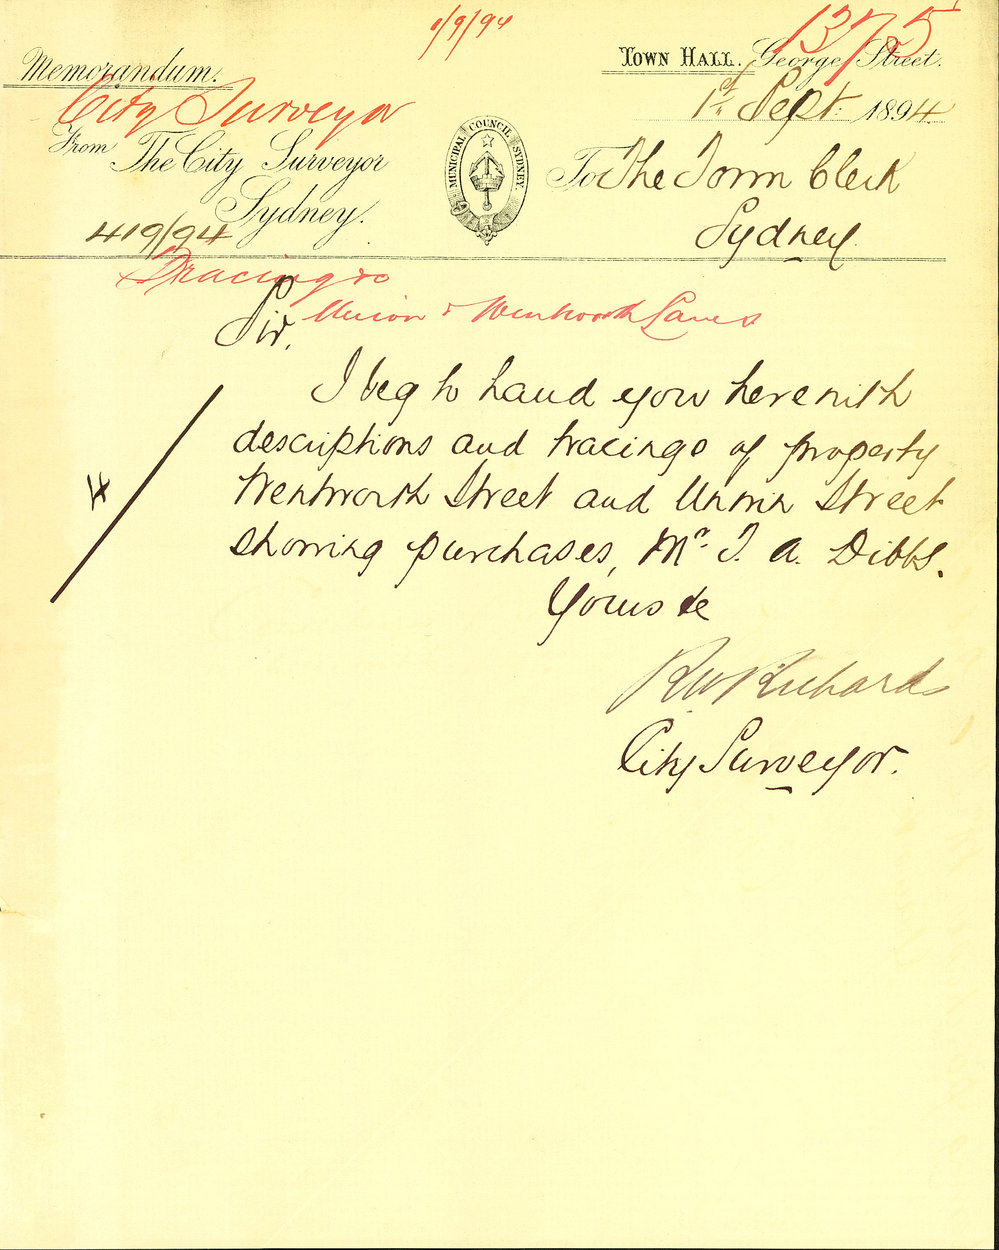 1/9/94
1375
Memorandum.
Town Hall. George Street.
City Surveyor
1st Sept 1894
From The City Surveyor
Sydney.
MUNICIPAL COUNCIL SYDNEY.
To The Town Clerk
Sydney
419/94
Tracing &c
Union & Wentworth Lanes
Sir,
I beg to hand you herewith
descriptions and tracings of property
Wentworth Street and Union Street
showing purchases, Mr. T. A. Dibbs.
Yours &c
RW Richards
City Surveyor.